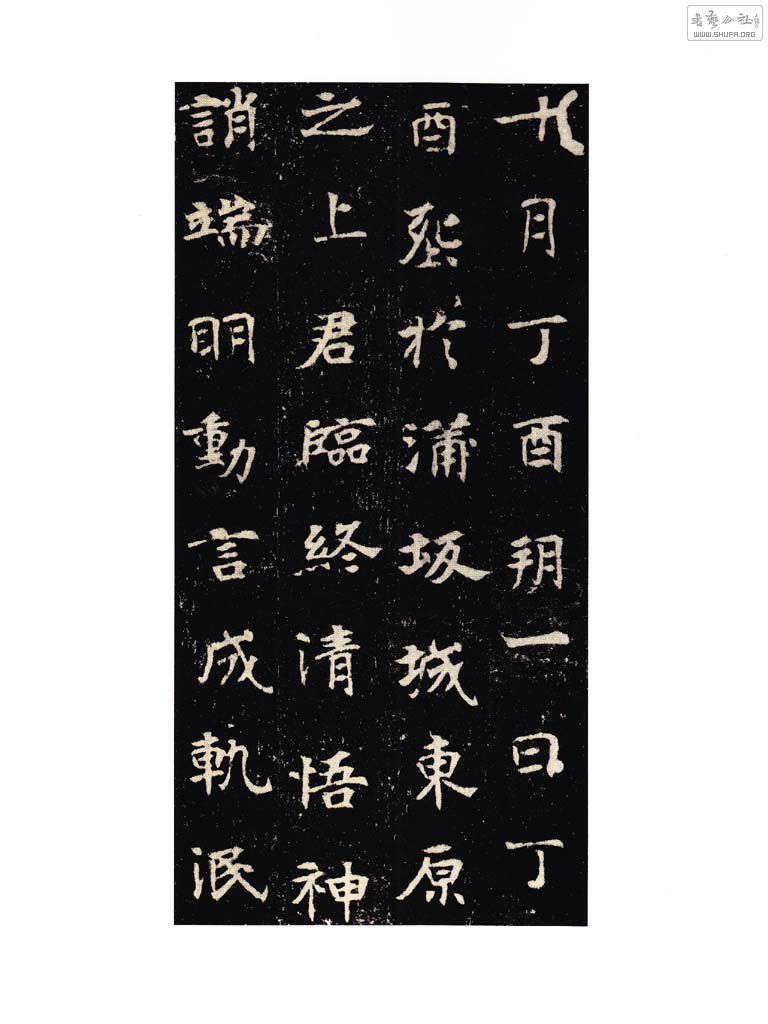 書藝公社
WWW.SHUFA.ORG
十月丁酉朔一日丁
酉葬於蒲坂城東原
之上君臨終清悟神
誚端眀動言成軌泯